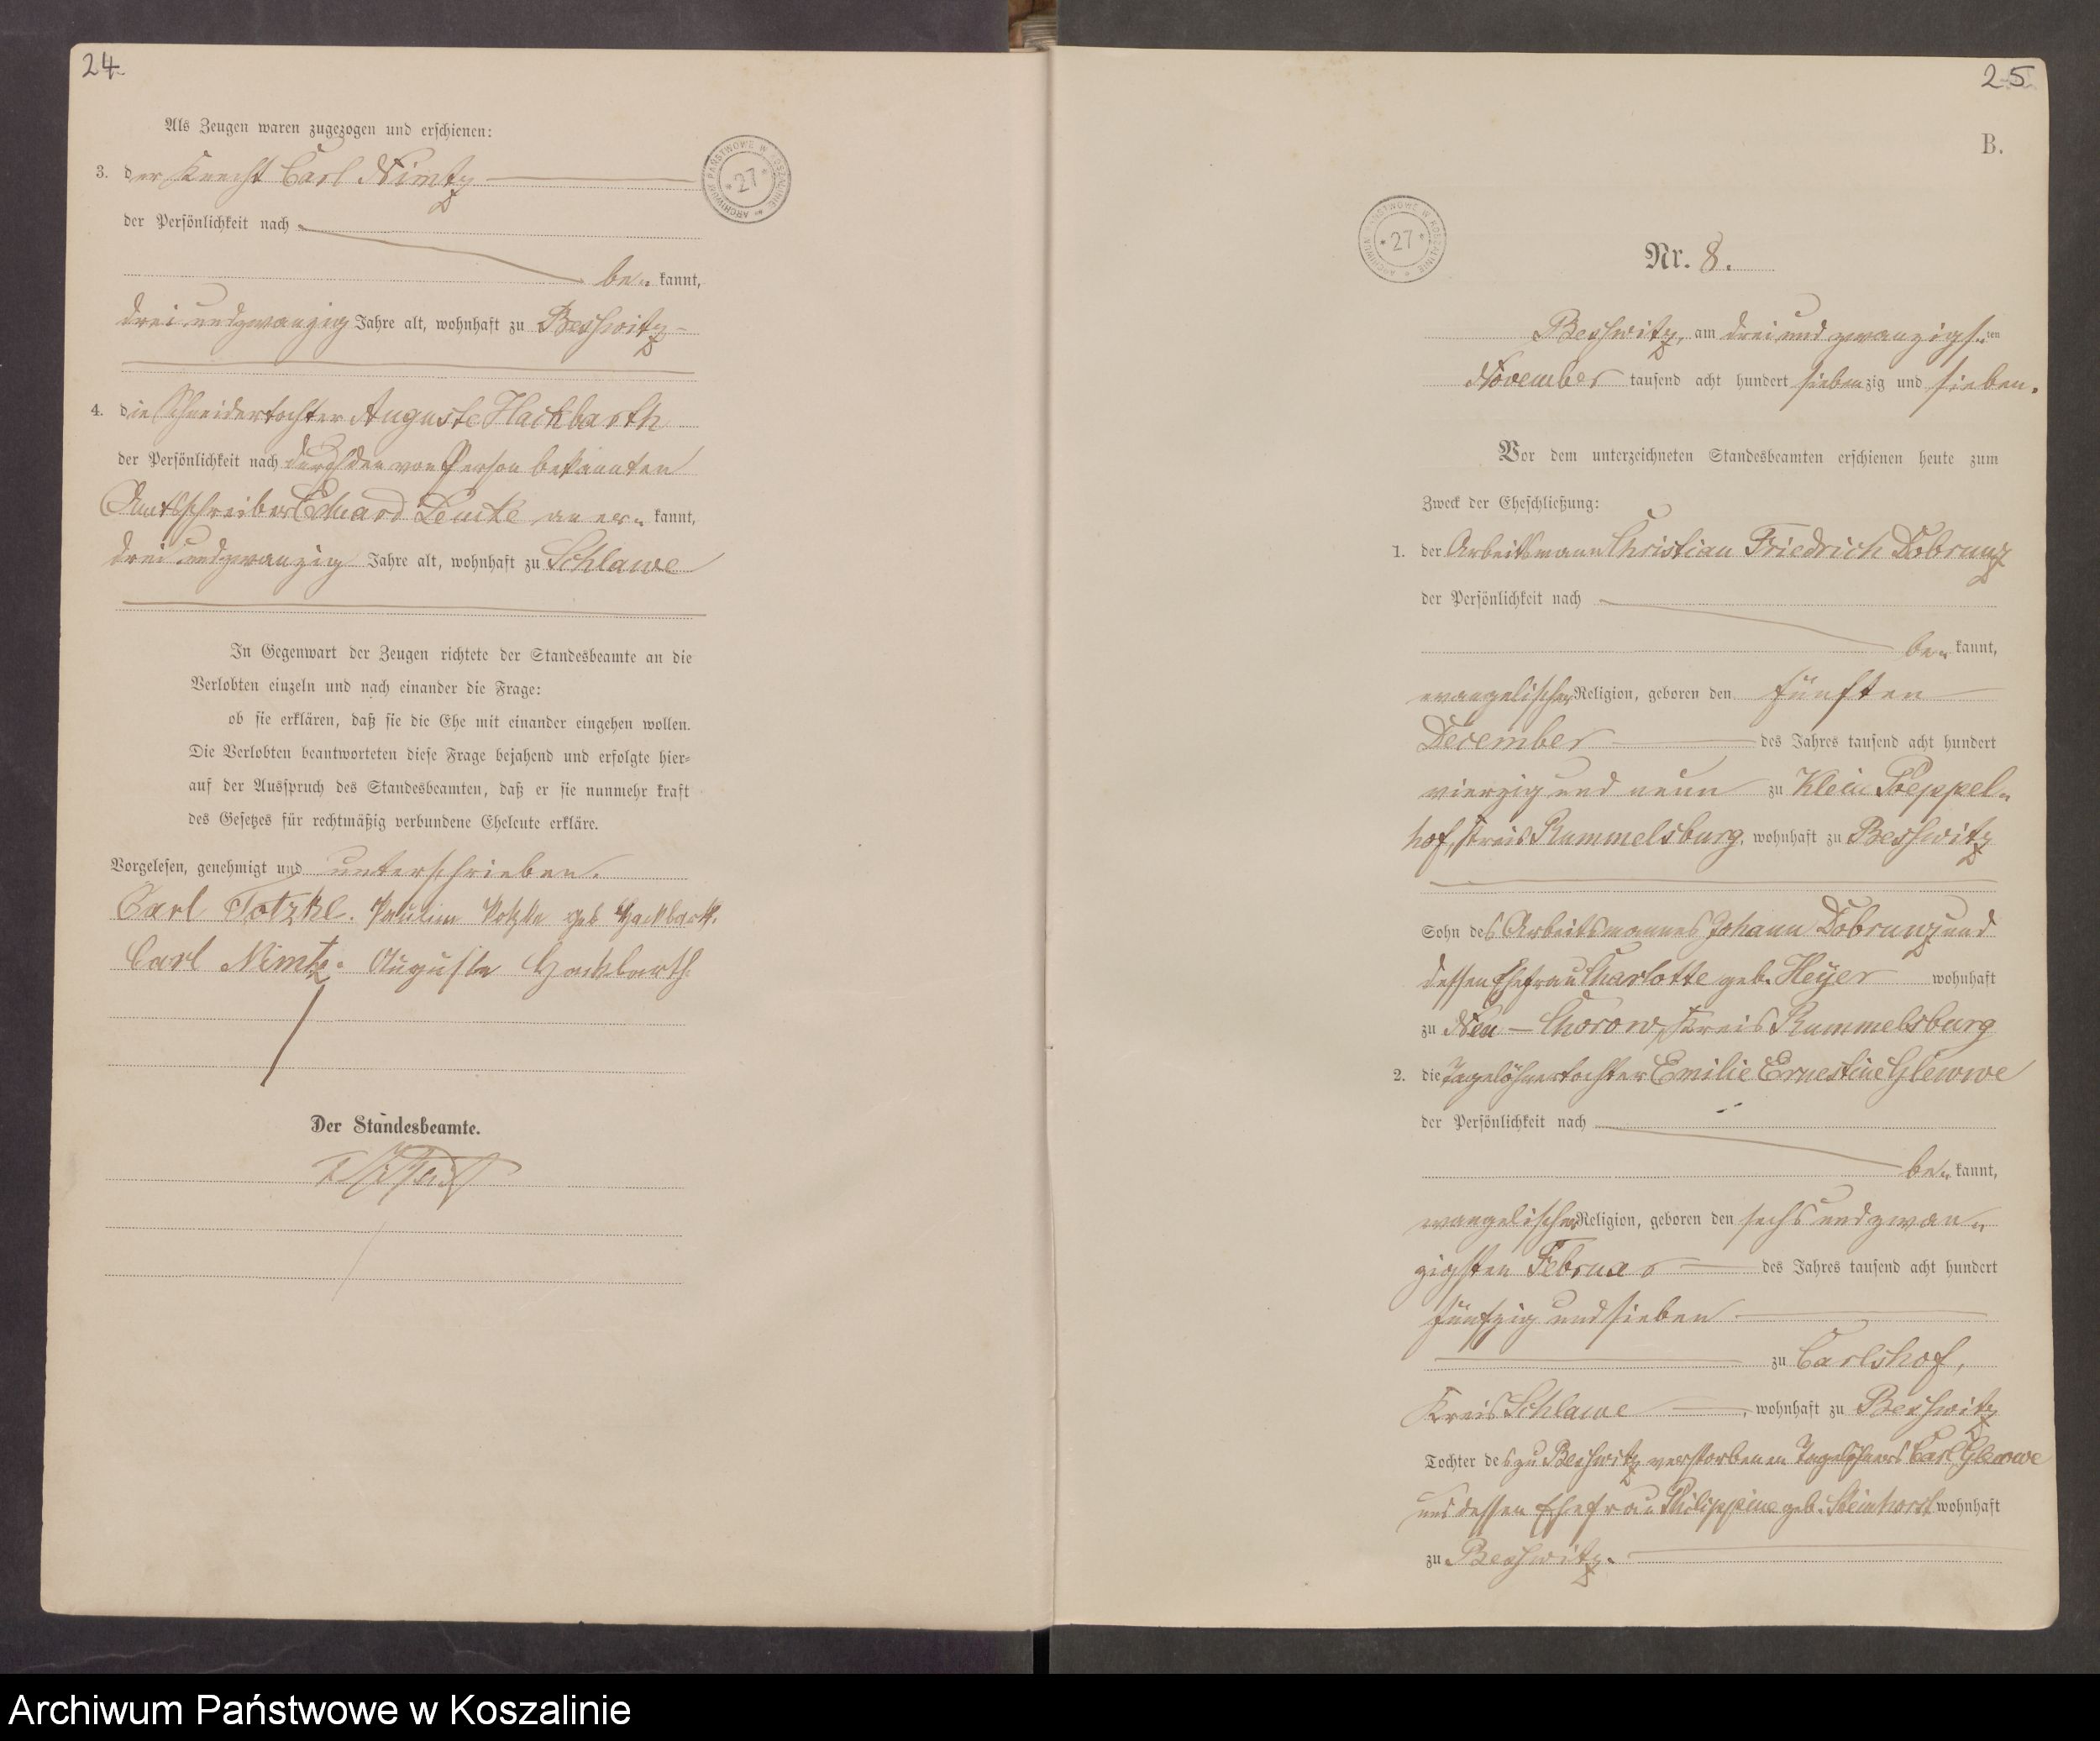 24
Als Zeugen waren zugezogen und erschienen:
3. der Knecht Carl Nimtz
der Persönlichkeit nach
be- kannt,
drei und zwanzig Jahre alt, wohnhaft zu Beßwitz
4. die Schneidertochter Auguste Hackbarth
der Persönlichkeit nach durch den von Person bekannten
Amtsschreiber Eduard Lemke aner- kannt,
drei und zwanzig Jahre alt, wohnhaft zu Schlawe
In Gegenwart der Zeugen richtete der Standesbeamte an die
Verlobten einzeln und nach einander die Frage:
ob sie erklären, daß sie die Ehe mit einander eingehen wollen.
Die Verlobten beantworteten diese Frage bejahend und erfolgte hier-
auf der Ausspruch des Standesbeamten, daß er sie nunmehr kraft
des Gesetzes für rechtmäßig verbundene Eheleute erkläre.
Vorgelesen, genehmigt und unterschrieben.
Carl Totzke. geb Hackbarth.
Carl Nimtz. Auguste Hackbarth.
Der Standesbeamte.
ARCHIWUM PAŃSTWOWE W KOSZALINIE
* 27 *
25
B.
ARCHIWUM PAŃSTWOWE W KOSZALINIE
* 27 *
Nr. 8.
Beßwitz, am drei und zwanzigsten
November tausend acht hundert siebenzig und sieben.
Vor dem unterzeichneten Standesbeamten erschienen heute zum
Zweck der Eheschließung:
1. der Arbeitsmann Christian Friedrich Dobrunz
der Persönlichkeit nach
be- kannt,
evangelischer Religion, geboren den fünften
December des Jahres tausend acht hundert
vierzig und neun zu Klein Reppel-
hof, Kreis Rummelsburg, wohnhaft zu Beßwitz
Sohn des Arbeitsmannes Johann Dobrunz und
dessen Ehefrau Charlotte geb. Heyer wohnhaft
zu Neu-Chorow, Kreis Rummelsburg
2. die Tagelöhnertochter Emilie Ernestine Glewwe
der Persönlichkeit nach
be- kannt,
evangelischer Religion, geboren den sechs und zwan-
zigsten Februar des Jahres tausend acht hundert
fünfzig und sieben
zu Carlshof,
Kreis Schlawe, wohnhaft zu Beßwitz
Tochter des zu Beßwitz verstorbenen Tagelöhners Carl Glewwe
und dessen Ehefrau Philippine geb. Steinhorst wohnhaft
zu Beßwitz.
Archiwum Państwowe w Koszalinie